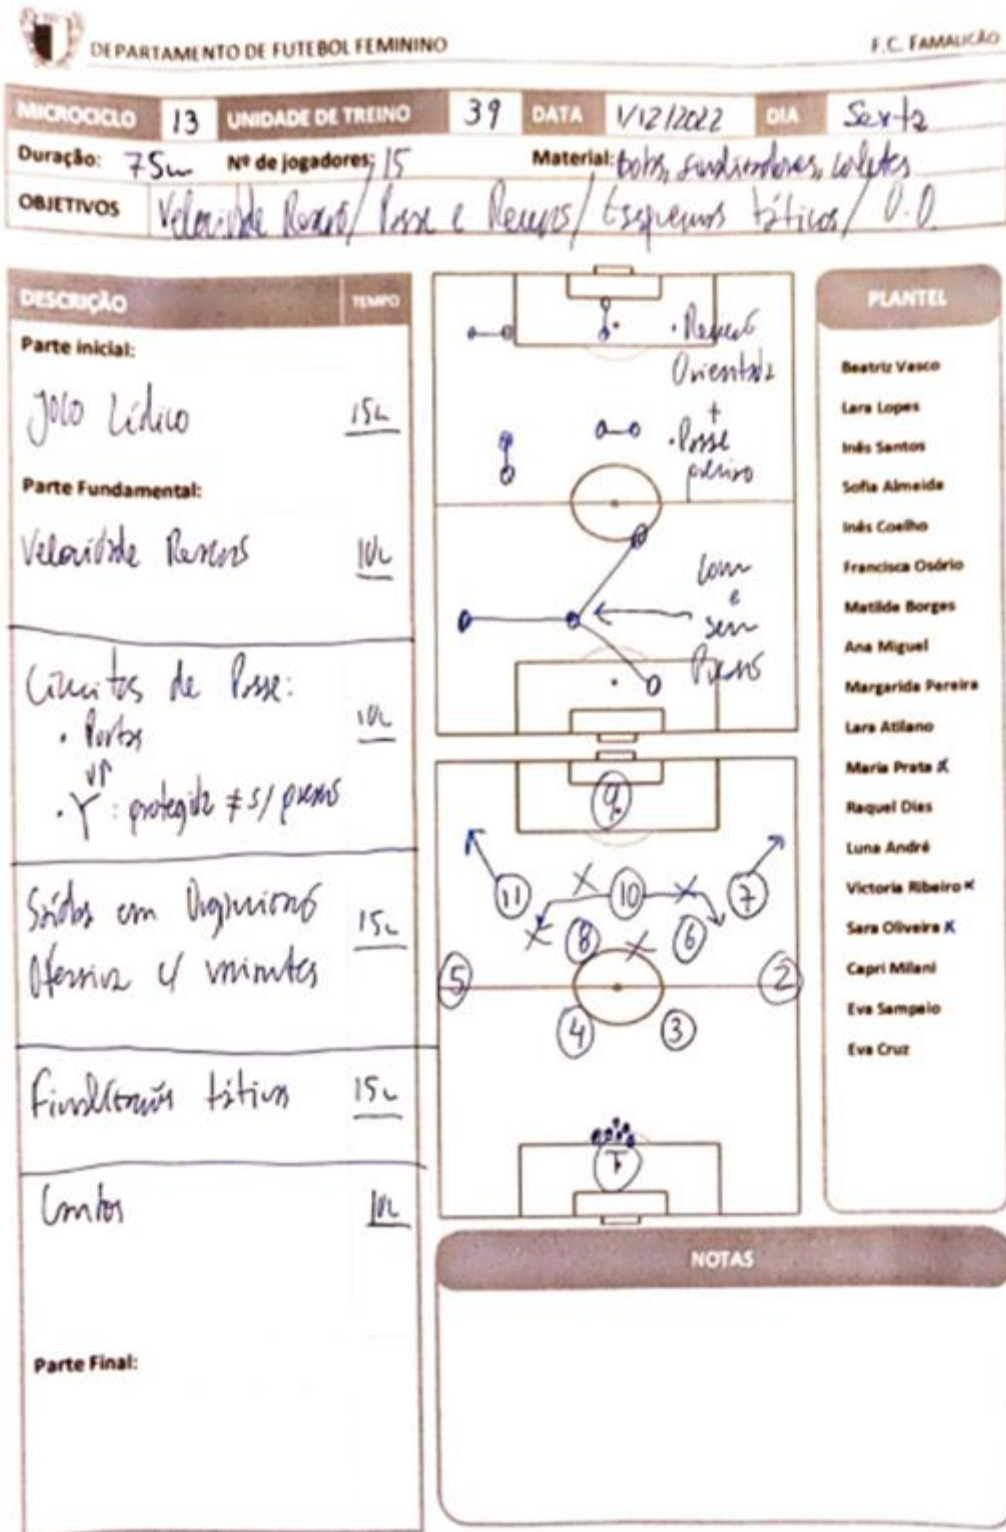 DEPARTAMENTO DE FUTEBOL FEMININO
F.C. FAMALICÃO
MICROCICLO 13 UNIDADE DE TREINO 39 DATA 1/12/2022 DIA Sexta
Duração: 75m Nº de jogadores: 15 Material: bolas, sinalizadores, coletes
OBJETIVOS Velocidade Reação / Passe e Receção / Esquemas táticos / O.O.
DESCRIÇÃO TEMPO
Parte inicial:
Jogo Lúdico 15m
Parte Fundamental:
Velocidade Reação 10m
Circuitos de Passe: 10m
• Portas
vs
• Y : protegida ≠ s/ pressão
Saídas em Organização 15m
Ofensiva c/ minutos
Finalizações táticas 15m
Cantos 10m
Parte Final:
• Receção
Orientada
+
• Passe
preciso
Com
e
sem
Pressão
9
11 10 7
8 6
5 2
4 3
1
PLANTEL
Beatriz Vasco
Lara Lopes
Inês Santos
Sofia Almeida
Inês Coelho
Francisca Osório
Matilde Borges
Ana Miguel
Margarida Pereira
Lara Atilano
Maria Prata x
Raquel Dias
Luna André
Victoria Ribeiro x
Sara Oliveira x
Capri Milani
Eva Sampaio
Eva Cruz
NOTAS